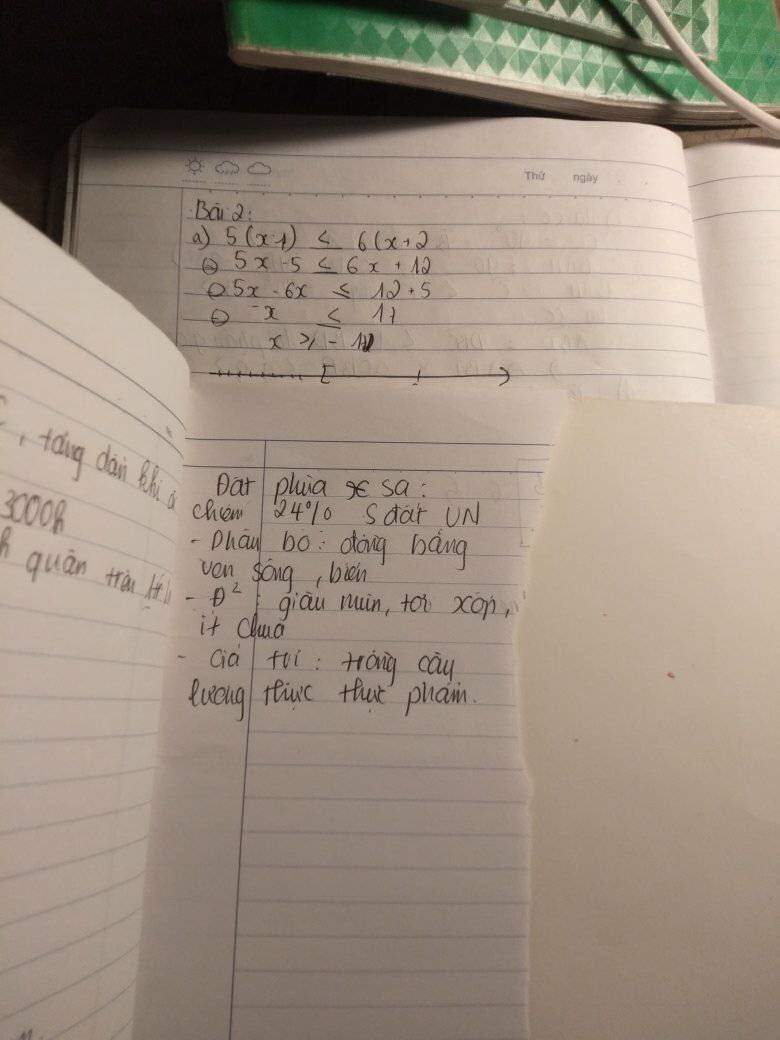 Thứ ngày
Bài 2:
a) 5(x-1) ≤ 6(x+2
⇔ 5x-5 ≤ 6x + 12
⇔ 5x - 6x ≤ 12+5
⇔ -x ≤ 17
x ≥ -
, tăng dần khi
3000h
quân trên
Đất phùa sa:
chiếm 24% S đất VN
- phân bố: đồng bằng
ven sông, biển
- Đ²: giàu mùn, tơi xốp,
ít chua
- Giá trị: trồng cây
lương thực thực phẩm.